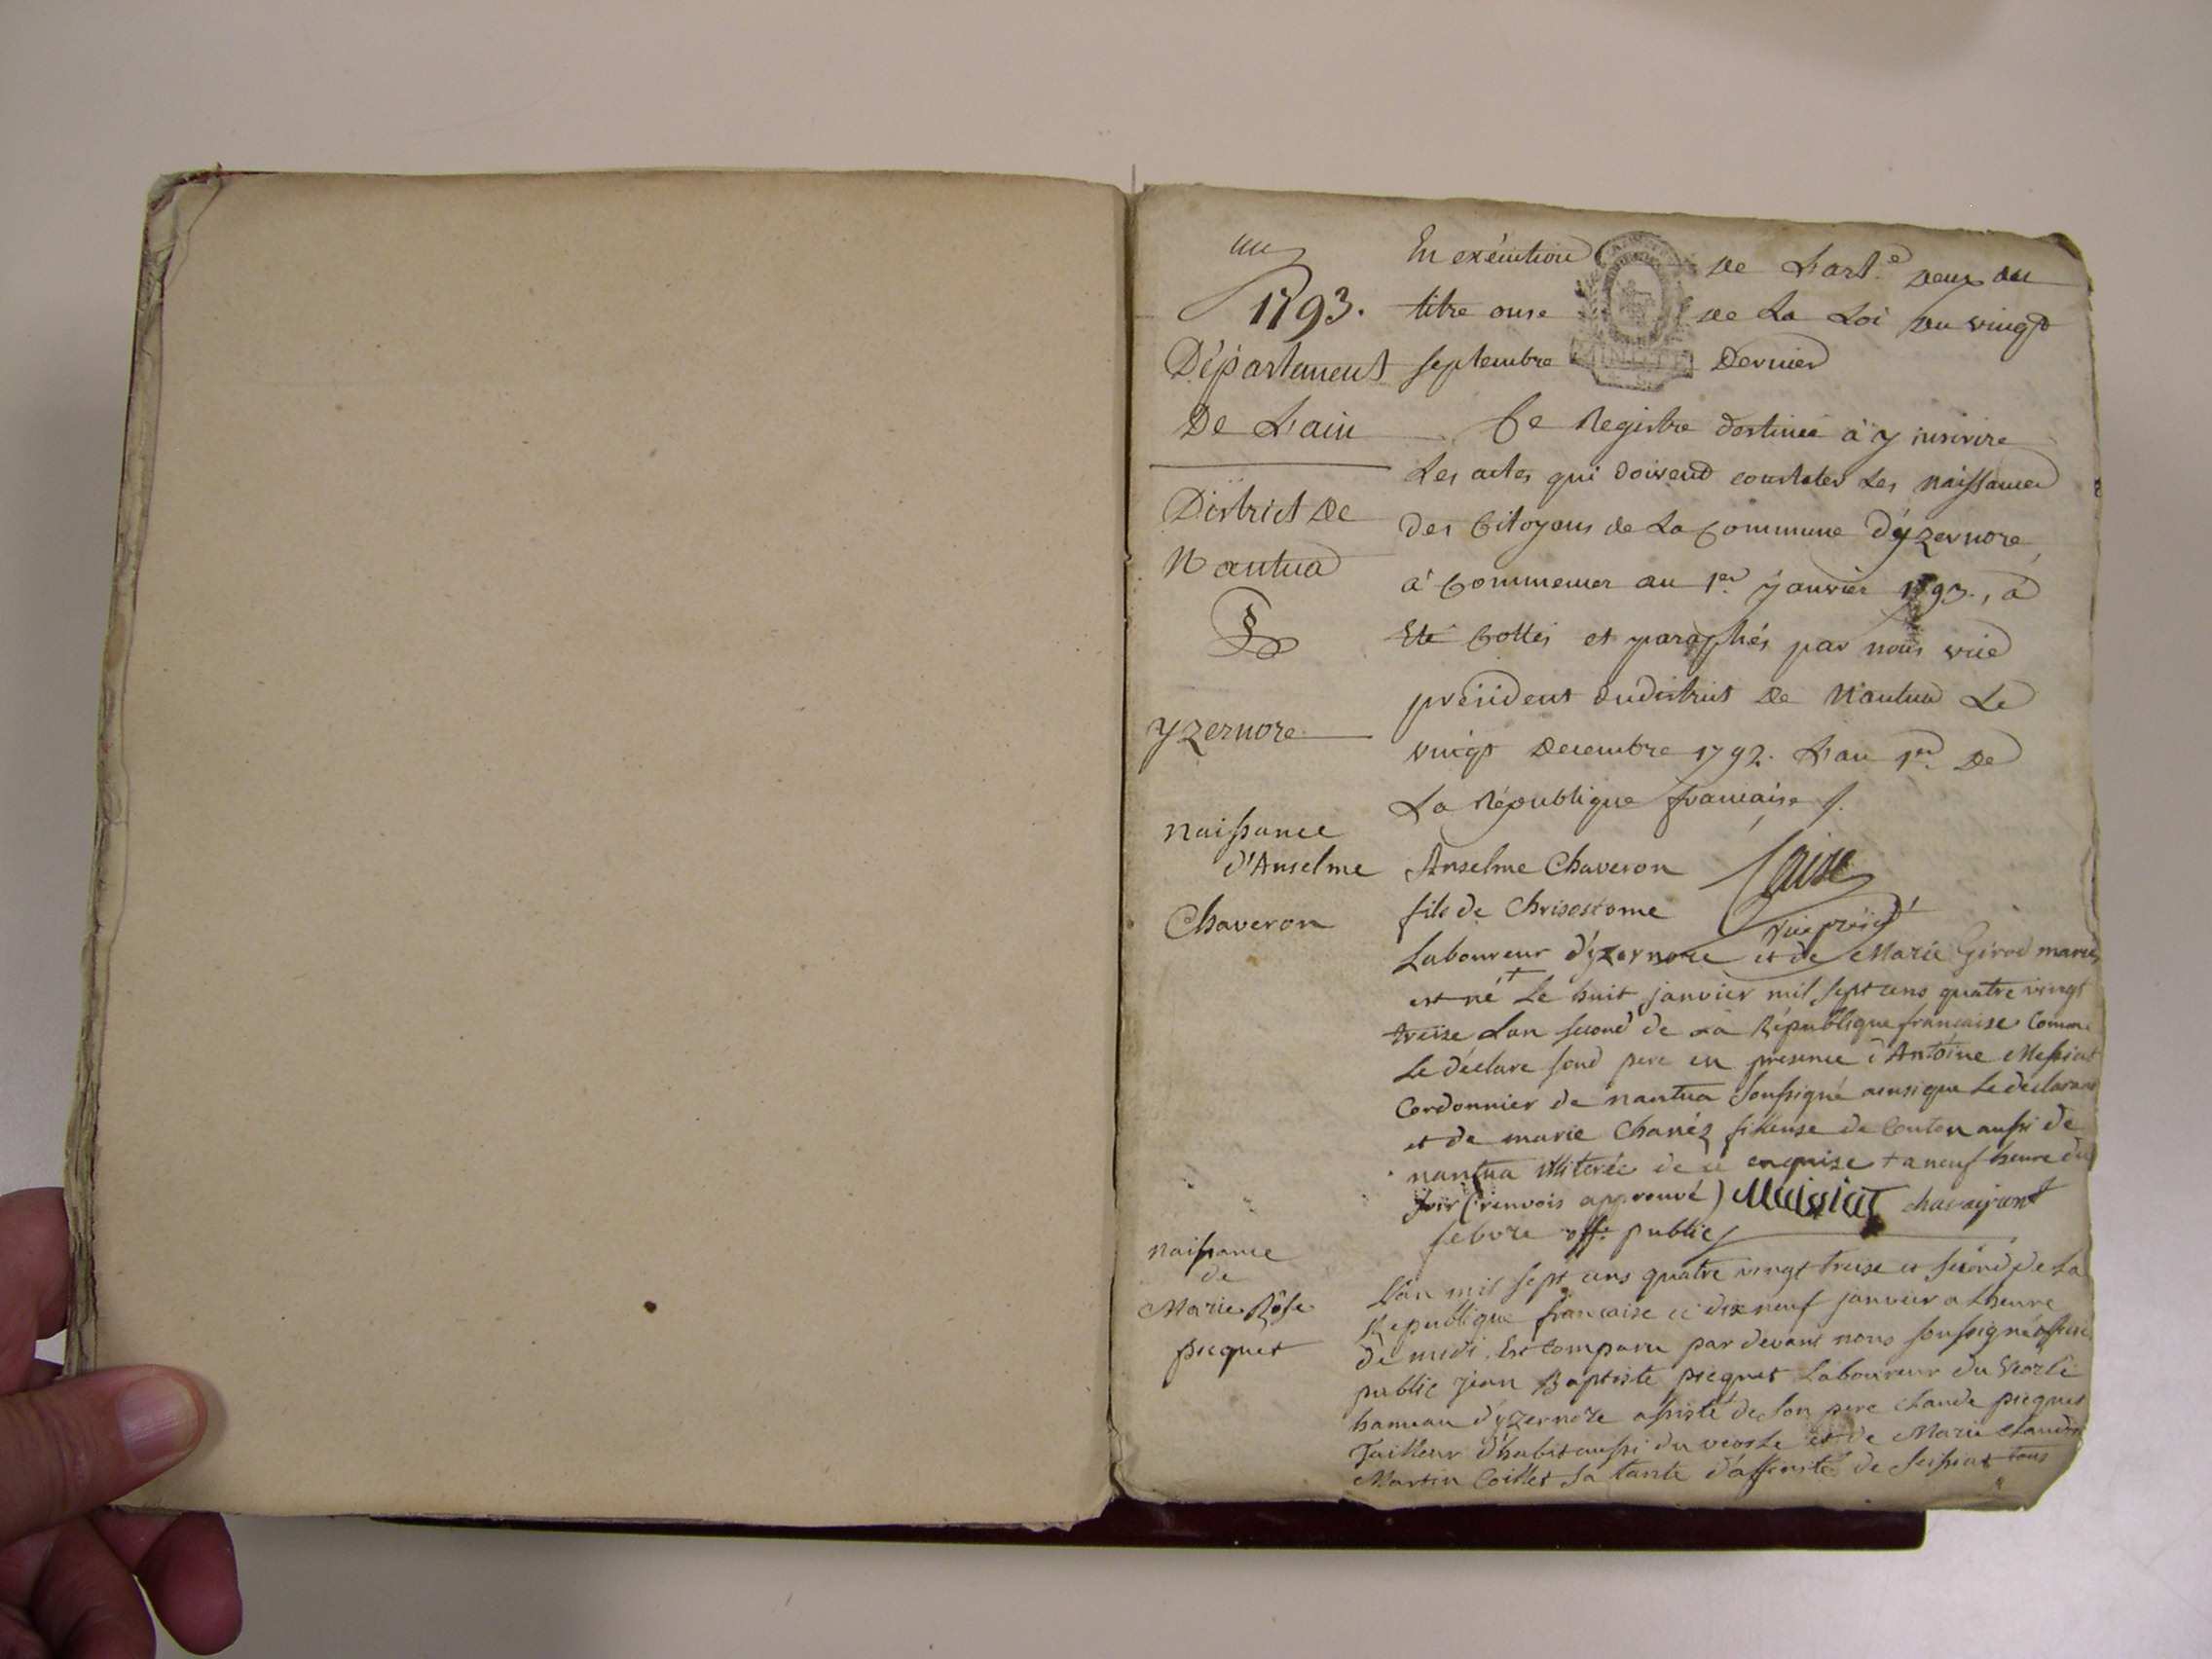 un
1793.
Département
De L'ain
District De
Nantua
yzernore
En exécution de L'art.e deux du
titre onse de La Loi du vingt
septembre Dernier
MINUTE
Ce Registre destinée à y inscrire
Les actes qui doivent constater Les naissances
des Citoyens de La Commune d'yzernore,
à Commencer au 1er. janvier 1793., à
Eté Cottés et paraphés par nous vice
président du district De Nantua Le
vingt Decembre 1792. L'an 1er. De
La République francaise ./.
vice présid.t
naissance
d'Anselme
Chaveron
Anselme Chaveron
fils de Chrisostome
Laboureur d'yzernore et de Marie Girod mariés
est né + Le huit janvier mil sept cens quatre vingt
treize Lan second de La République francaise Comme
Le déclare sond pere en presence d'Antoine Messiat
Cordonnier de nantua soussigné ainsi que Le declarant
et de marie Chanéz fileuse de Couton aussi de
nantua illiterée de ce enquise + a neuf heure du
soir (renvois approuvé) Maissiat chavairont
febvre off. public
naissance
de
Marie Rose
picquet
L'an mil sept cens quatre vingt treize et second de La
Republique francaise ce dix neuf janvier a Lheure
de midi, Est Comparu par devant nous soussigné officier
public jean Baptiste picquet Laboureur du
hameau d'yzernore assisté de son pere claude picquet
Tailleur d'habit aussi du et de Marie claudine
Martin Coillet sa tante d'affinité de tous